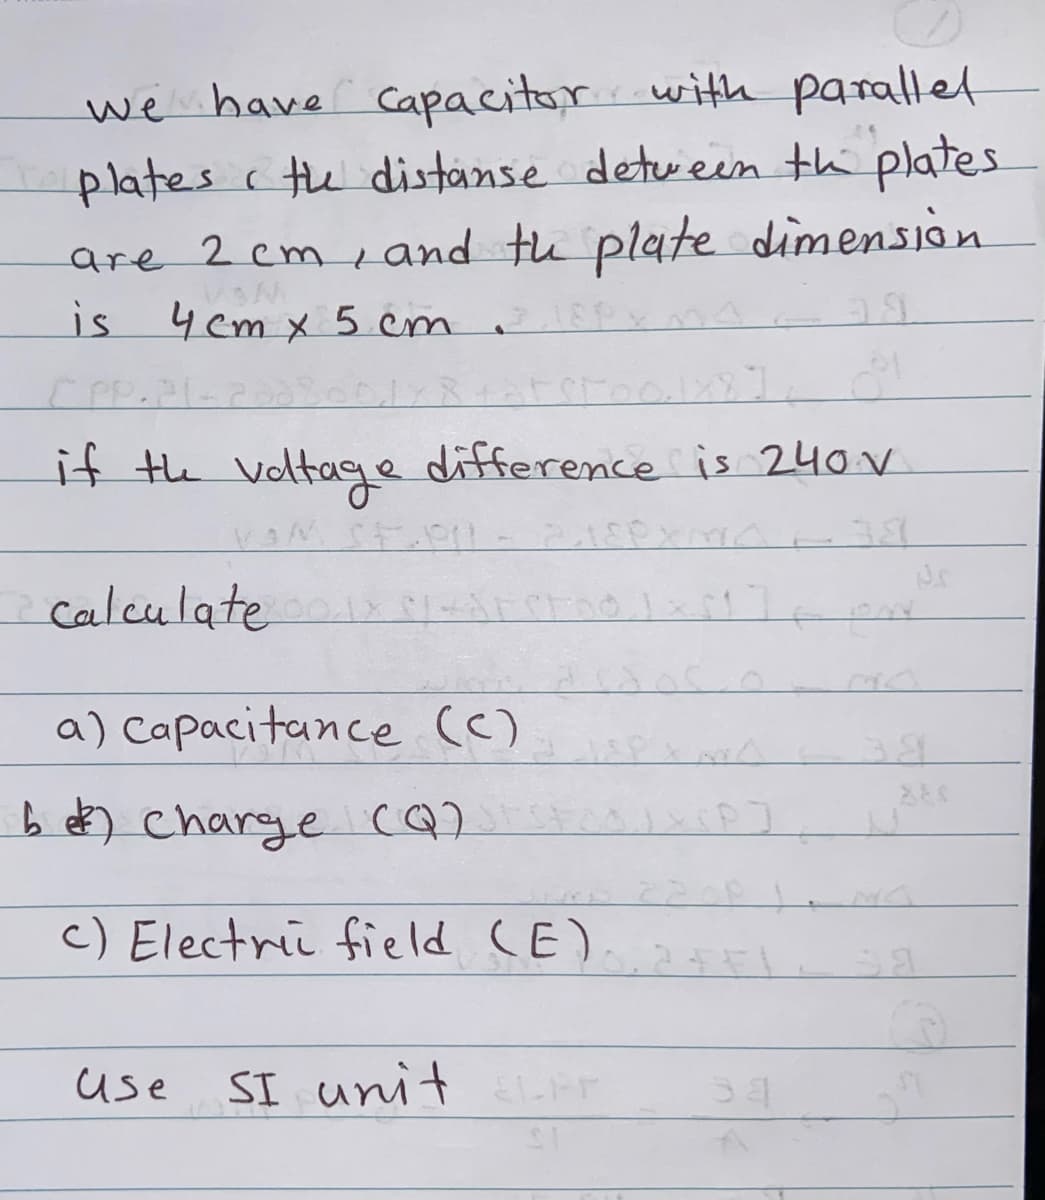 we have capacitor with parallel
plates ، the distanse detween th plates
are 2 cm , and the plate dimension
is 4 cm x 5 cm .
if the voltage difference is 240 v
calculate
a) capacitance (C)
b) charge (Q)
c) Electric field (E)
use SI unit